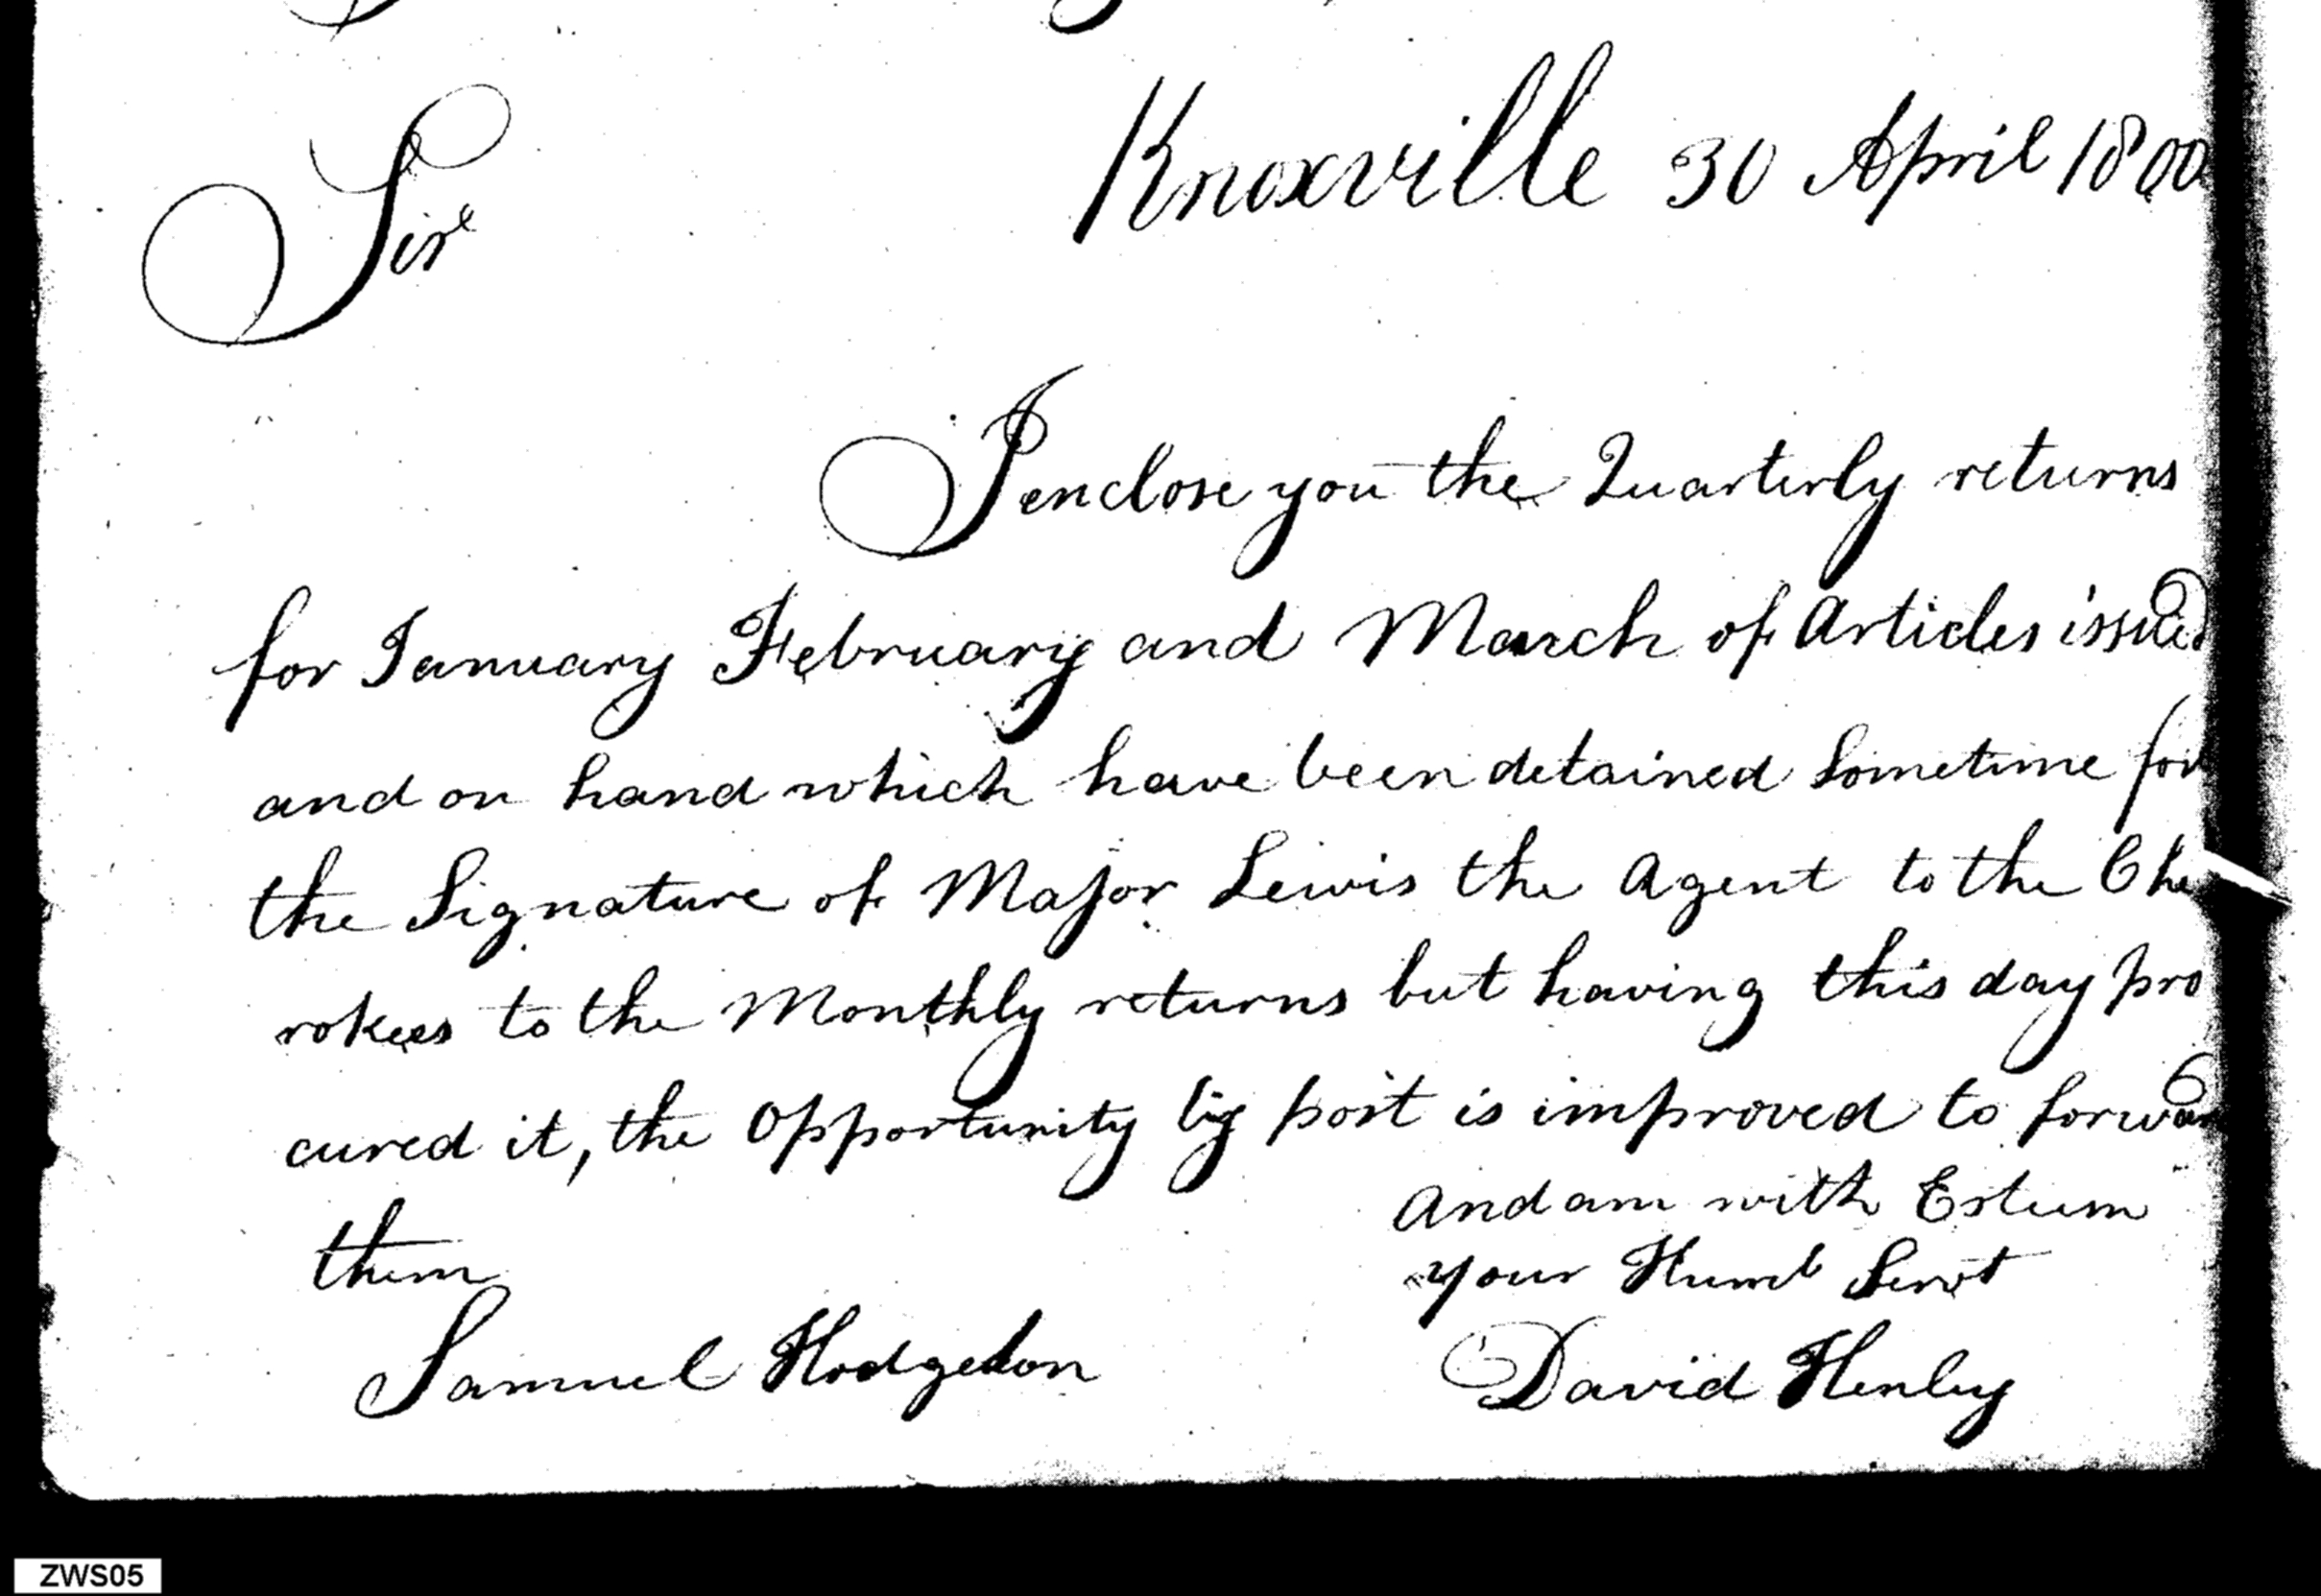 Knoxville 30 April 1800
Sir
I enclose you the Quarterly returns
for January February and March of Articles issued
and on hand which have been detained sometime for
the Signature of Major Lewis the Agent to the Che
rokees to the Monthly returns but having this day pro
cured it, the Opportunity by post is improved to forward
them
And am with Esteem
your Humb Servt
Samuel Hodgedon
David Henley
ZWS05